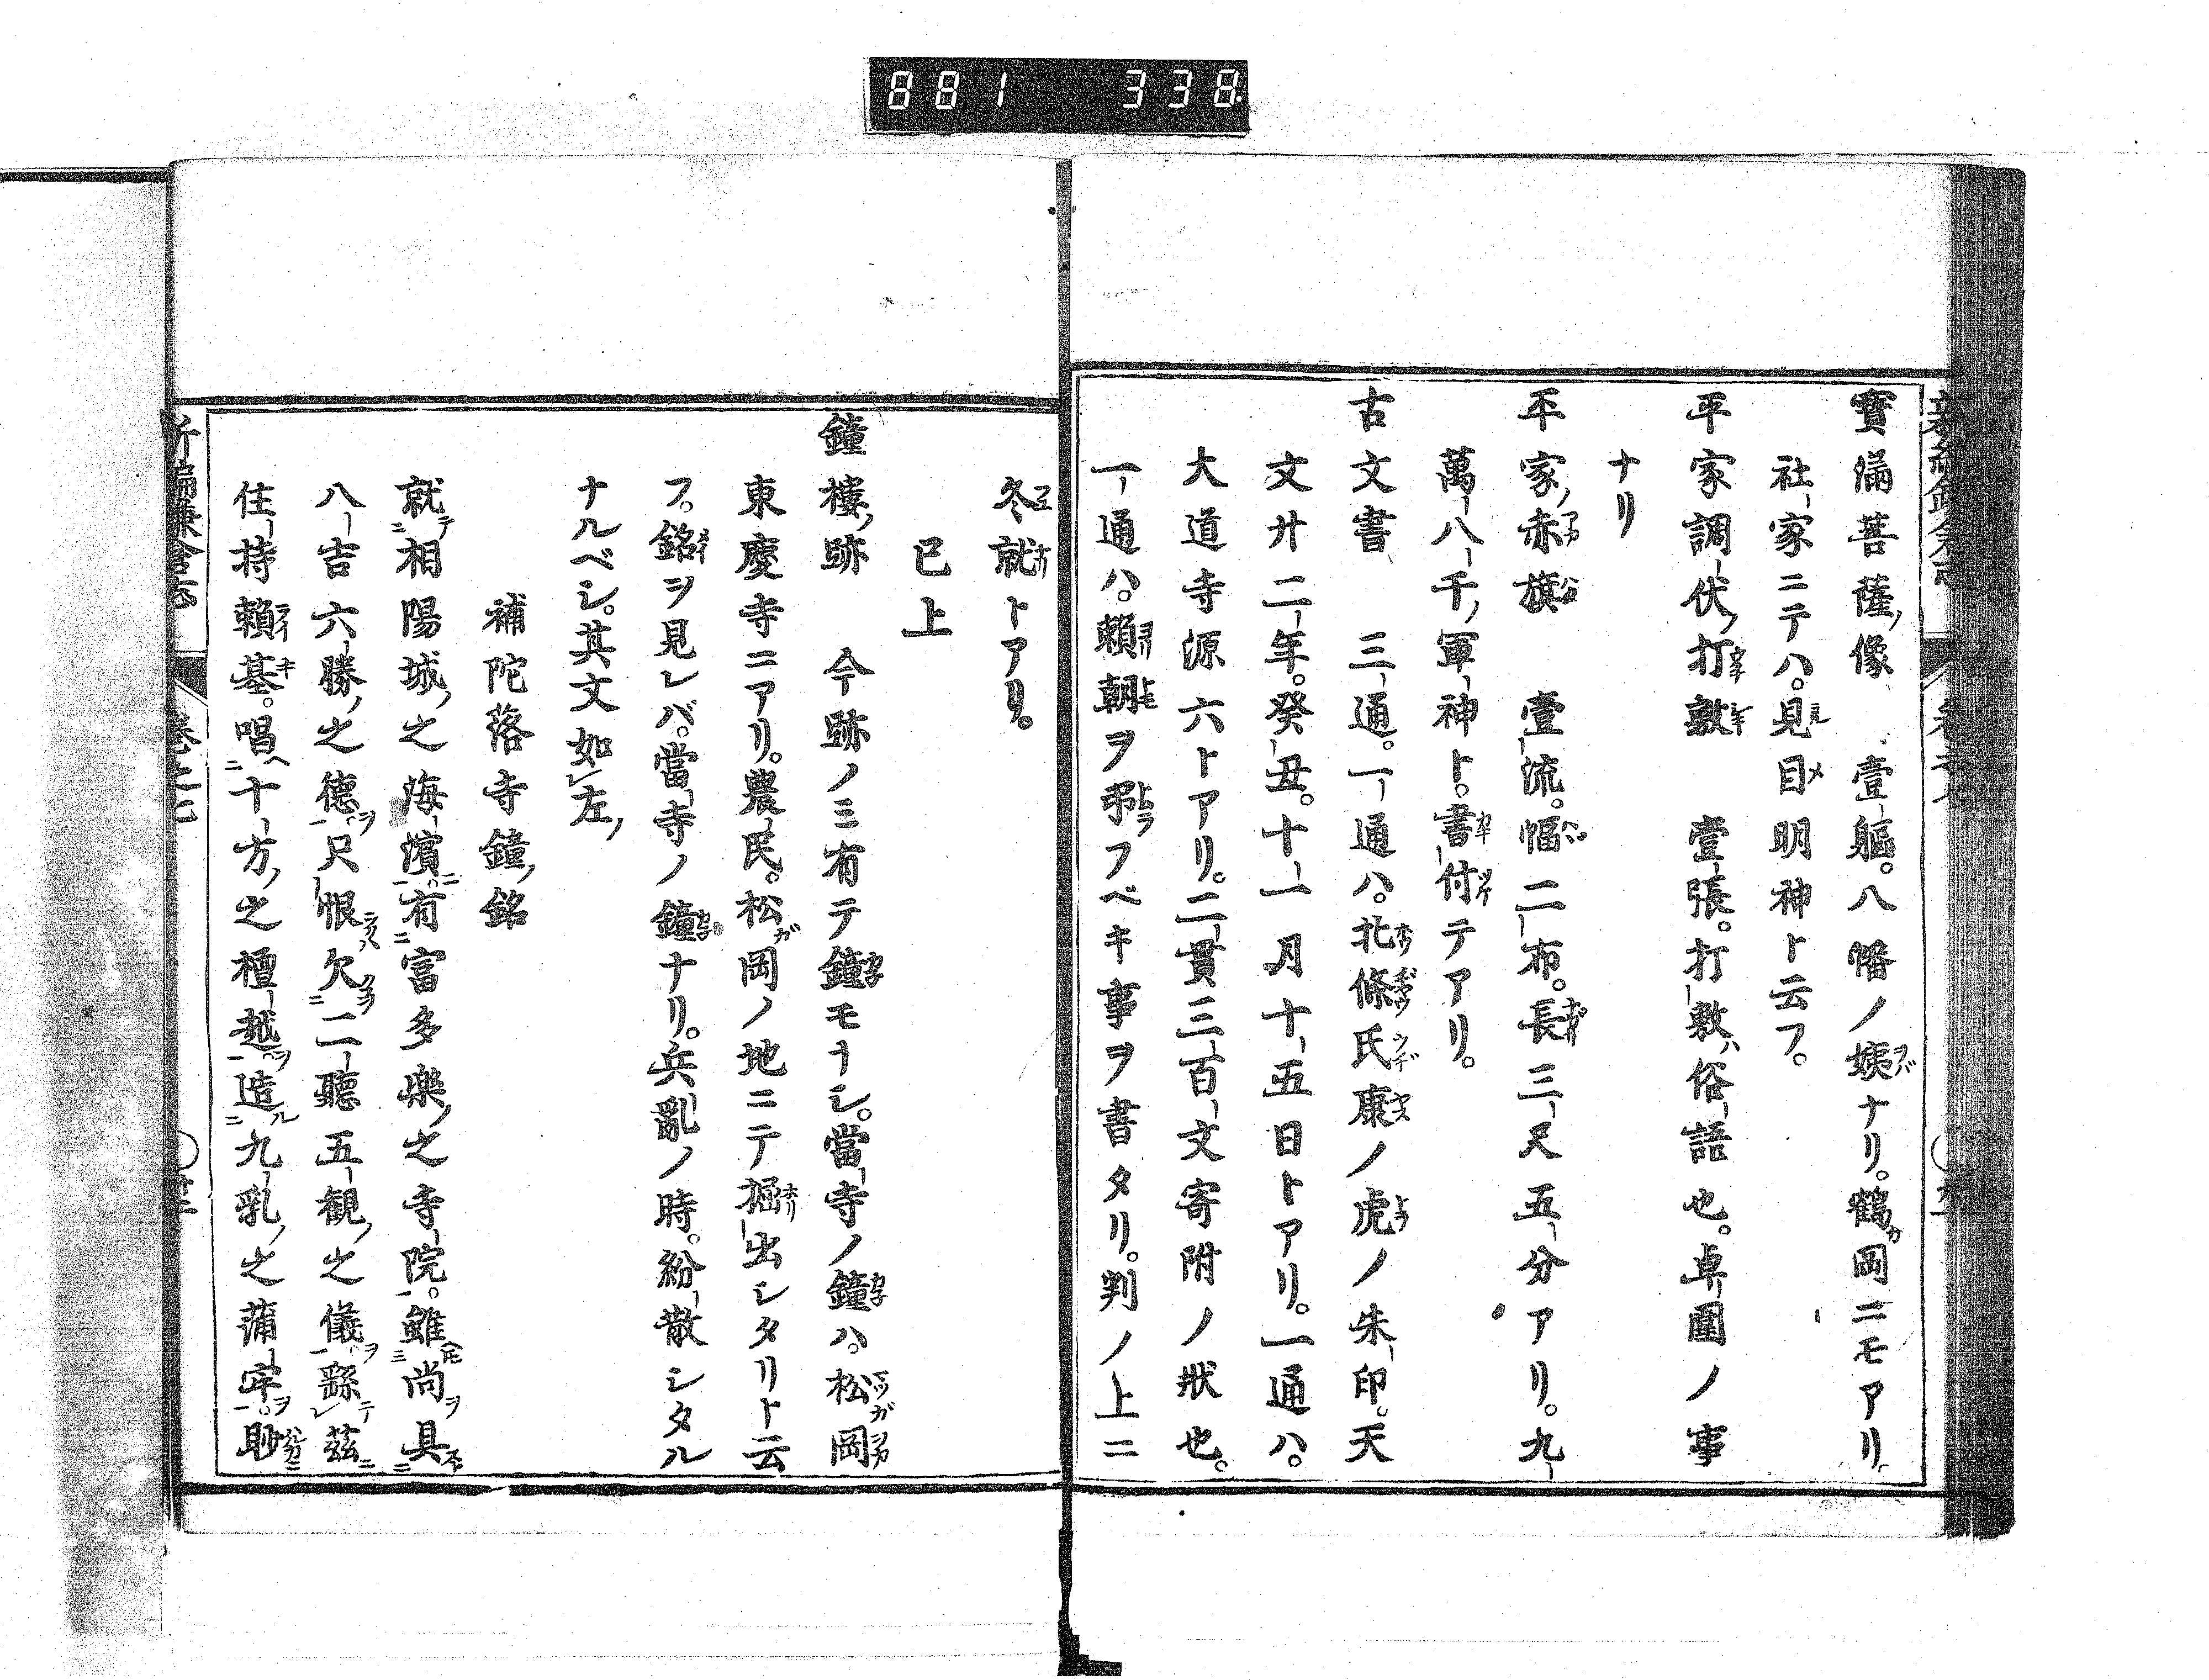 881 338
寶滿菩薩ノ像 壹軀。八幡ノ姨ナリ。鶴岡ニモアリ
社家ニテハ。見目明神ト云フ。
平家調伏ノ打敷 壹張。打敷ハ俗語也。卓圍ノ事
ナリ
平家ノ赤旗 壹流。幅二布。長三尺五分アリ。九
萬八千ノ軍神ト。書付テアリ。
古文書 三通。一通ハ。北條氏康ノ虎ノ朱印。天
文廿二年。癸丑。十一月十五日トアリ。一通ハ。
大道寺源六トアリ。二貫三百文寄附ノ狀也。
一通ハ。賴朝ヲ弔フベキ事ヲ書タリ。判ノ上ニ
冬就トアリ。
已上
鐘樓ノ跡 今跡ノミ有テ鐘モナシ。當寺ノ鐘ハ。松岡
東慶寺ニアリ。農民。松岡ノ地ニテ掘出シタリト云
フ。銘ヲ見レバ。當寺ノ鐘ナリ。兵亂ノ時。紛散シタル
ナルベシ。其文如左
補陀落寺鐘ノ銘
就テ相陽城之海濱。有富多樂之寺院。雖尚具
八吉六勝之德。只恨欠二聽五觀之儀。繇茲
住持賴基。唱十方之檀越。造九乳之蒲牢。眇
新編鎌倉志 卷之七